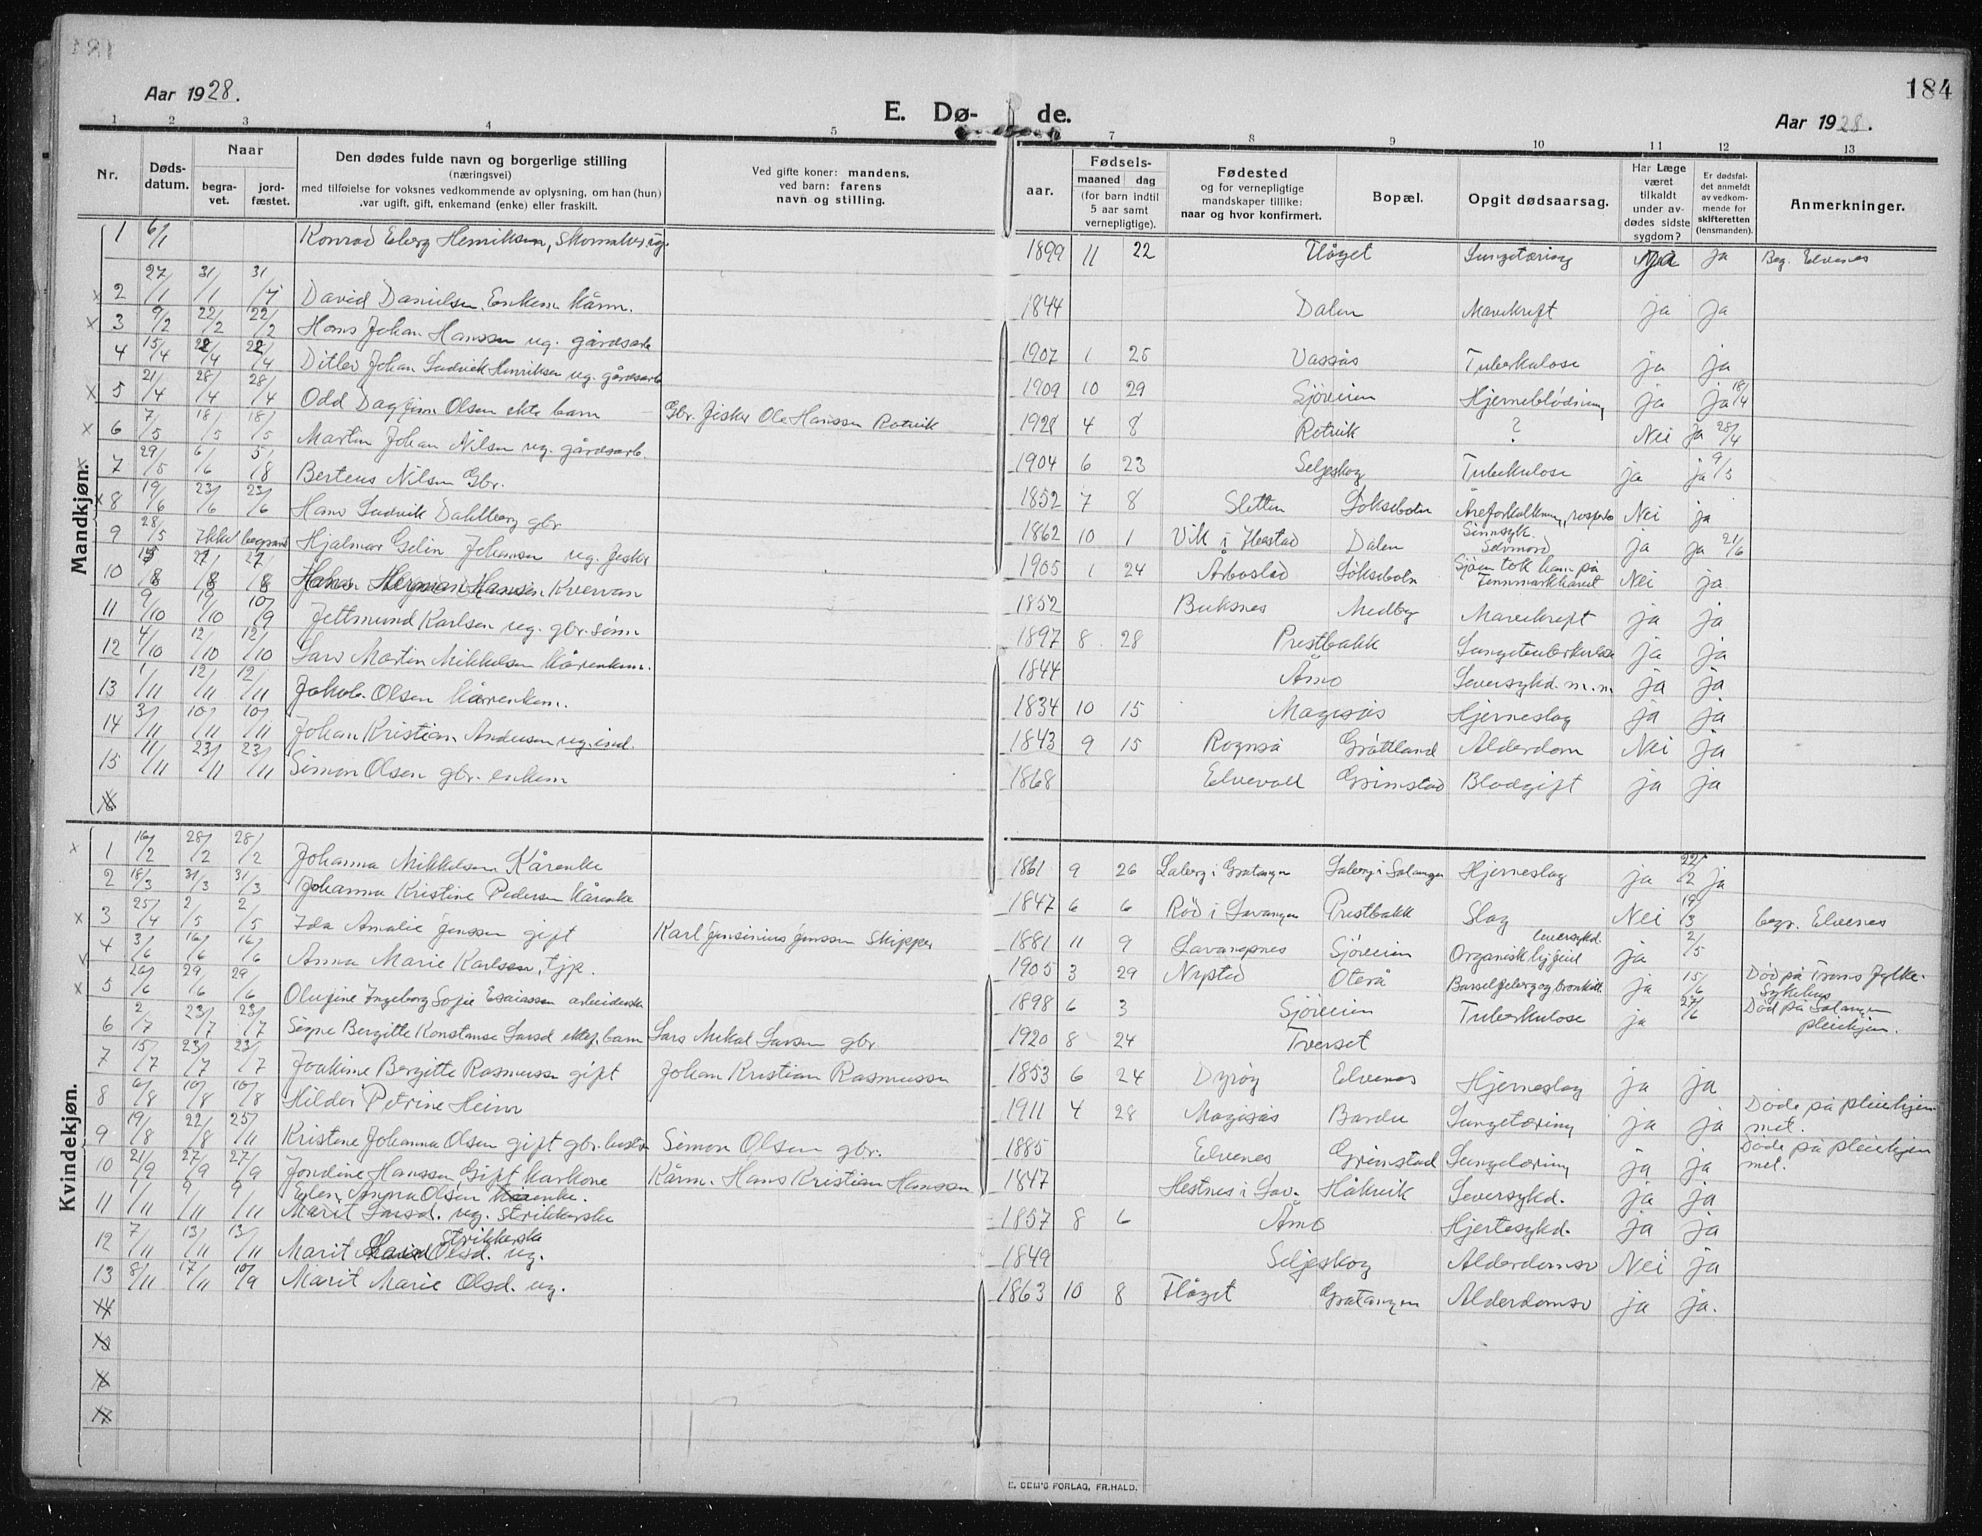 184
Aar 1928.
E. Dø- de.
Aar 1928.
1 2 3 4 5 7 8 9 10 11 12 13
Nr.
Døds-datum.
Naar
begra-vet.
jord-fæstet.
Den dødes fulde navn og borgerlige stilling
(næringsvei)
med tilføielse for voksnes vedkommende av oplysning, om han (hun)
var ugift, gift, enkemand (enke) eller fraskilt.
Ved gifte koner: mandens,
ved barn: farens
navn og stilling.
aar.
Fødsels-
maaned dag
(for barn indtil
5 aar samt
vernepligtige).
Fødested
og for vernepligtige
mandskaper tillike:
naar og hvor konfirmert.
Bopæl.
Opgit dødsaarsag.
Har Læge
været
tilkaldt
under av-
dødes sidste
sygdom?
Er dødsfal-
det anmeldt
av vedkom-
mende for
skifteretten
(lensmanden).
Anmerkninger.
Mandkjøn.
1 6/1 Konrad Eberg Henriksen, Skomaker ug. 1899 11 22 Flåget Lungetæring ja ja Beg. Elvenes
2 27/1 31/1 31/1 David Danielsen Enkem. Kårm. 1844 Dalen Mavekreft ja ja
3 9/2 22/2 22/2 Hans Johan Hanssen ug. gårdsarb 1907 1 25 Vassås Tuberkulose ja ja
4 15/4 22/4 22/4 Ditlev Johan Ludvik Henriksen ug. gårdsarb 1909 10 29 Sjøveien Hjerneblødning ja ja 18/4
5 21/4 28/4 28/4 Odd Dagfinn Olsen ekte barn Gbr. fisker Ole Hanssen Rotvik 1928 4 8 Rotvik ? Nei ja 28/4
6 7/5 18/5 18/5 Martin Johan Nilsen ug. gårdsarb. 1904 6 23 Seljeskog Tuberkulose ja ja 9/5
7 29/5 6/6 5/8 Berteus Nilsen Gbr. 1852 7 8 Sletten Løksebotn Åreforkalkning, Nei ja
8 19/6 23/6 23/6 Hans Ludvik Dahlberg gbr 1862 10 1 Vik i Ibestad Dalen Sinnsyk. Selvmord ja ja 21/6
9 28/5 Ikke begravd Hjalmar Gelin Johansen ug. fisker 1905 1 24 Årbostad Løksebotn Sjøen tok ham på Finnmarkhavet Nei ja
10 15/8 27/8 27/8 Kvervan 1852 Buksnes Medby Mavekreft ja ja
11 9/10 19/10 10/9 Jettmund Karlsen ug. gbr. sønn 1897 8 28 Prestbakk Lungetuberkulose ja ja
12 4/10 12/10 12/10 Lars Martin Mikkelsen Kårenkem. 1844 Åmo Leversykd. m.m ja ja
13 1/11 12/11 12/11 Jakob Olsen Kårenkem. 1834 10 15 Magesås Hjerneslag ja ja
14 3/11 10/11 10/11 Johan Kristian Andersen ug. ind. 1843 9 15 Rognså Gråttland Alderdom Nei ja
15 11/11 23/11 23/11 Simon Olsen gbr. enkem 1868 Elvevoll Grimstad Blodgift ja ja
16
Kvindekjøn.
1 16/2 28/2 28/2 Johanna Mikkelsen Kårenke 1861 9 26 Laberg i Gratangen Laberg i Salangen Hjerneslag ja 22/2 ja
2 18/3 31/3 31/3 Johanna Kristine Pedersen Kårenke 1847 6 6 Rød i Lavangen Prestbakk Slag Nei 19/3 begr. Elvenes
3 25/4 2/5 2/5 Ida Amalie Jenssen gift Karl Jensinius Jenssen Skipper 1881 11 9 Lavangsnes Sjøveien Organisk hjfeil leversykd. ja 2/5
4 3/6 16/6 16/6 Anna Marie Karlsen, tjp. 1905 3 29 Nystad Oterå Barselfeber og bronkitt ja 15/6 Død på Troms Fylke-Sykehus
5 20/6 29/6 29/6 Olufine Ingeborg Sofie Esaiassen arbeiderske 1898 6 3 Sjøveien Tuberkulose ja 27/6 Død på Salangen pleiehjem.
6 2/7 23/7 23/7 Signe Bergitte Konstanse Larsd ektef. barn Lars Mikal Larsen gbr. 1920 8 24 Tverset
7 15/7 23/7 23/7 Joakime Bergitte Rasmussen gift Johan Kristian Rasmussen 1853 6 24 Dyrøy Elvenes Hjerneslag ja ja
8 6/8 10/8 10/8 Hilder Petrine Heim 1911 4 28 Magesås Bardu Lungetæring ja ja Døde på pleiehjemmet.
9 19/8 22/8 25/11 Kristine Johanna Olsen gift gbr. hustr Simon Olsen gbr. 1885 Elvenes Grimstad Lungetæring ja ja Døde på pleiehjemmet.
10 21/9 27/9 27/9 Jondine Hanssen Gift Karkone Kårm. Hans Kristian Hanssen 1847 Hestnes i Lav. Håkvik Leversykd. ja ja
11 1/11 9/11 9/11 Elen Anna Olsen Kårenke. Marit Larsd. ug. strikkerske 1857 8 6 Åmo Hjertesykd. ja ja
12 7/11 13/11 13/11 Marit Olsd. ug. strikkerske 1849 Seljeskog Alderdomsv Nei ja
13 8/11 17/11 10/9 Marit Marie Olsd. ug. 1863 10 8 Flåget Gratangen Alderdomsv ja ja.
14
E. SEM'S FORLAG, FR.HALD.